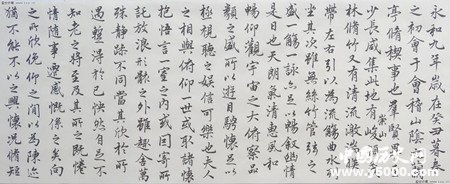 永和九年歲在癸丑暮春
之初會于會稽山陰之蘭
亭脩禊事也羣賢畢至
少長咸集此地有崇山峻領茂
林脩竹又有清流激湍暎
帶左右引以為流觴曲水
坐其次雖無絲竹管弦之
盛一觴一詠亦足以暢敘幽情
是日也天朗氣清惠風和
暢仰觀宇宙之大俯察品
類之盛所以遊目騁懷足以
極視聽之娛信可樂也夫人
之相與俯仰一世或取諸懷
抱悟言一室之內或因寄所
託放浪形骸之外雖趣舍萬
殊靜躁不同當其欣於所
遇暫得於己快然自足不
知老之將至及其所之既惓
情隨事遷感慨係之矣向
之所欣俛仰之間以為陳迹
猶不能不以之興懷況脩短